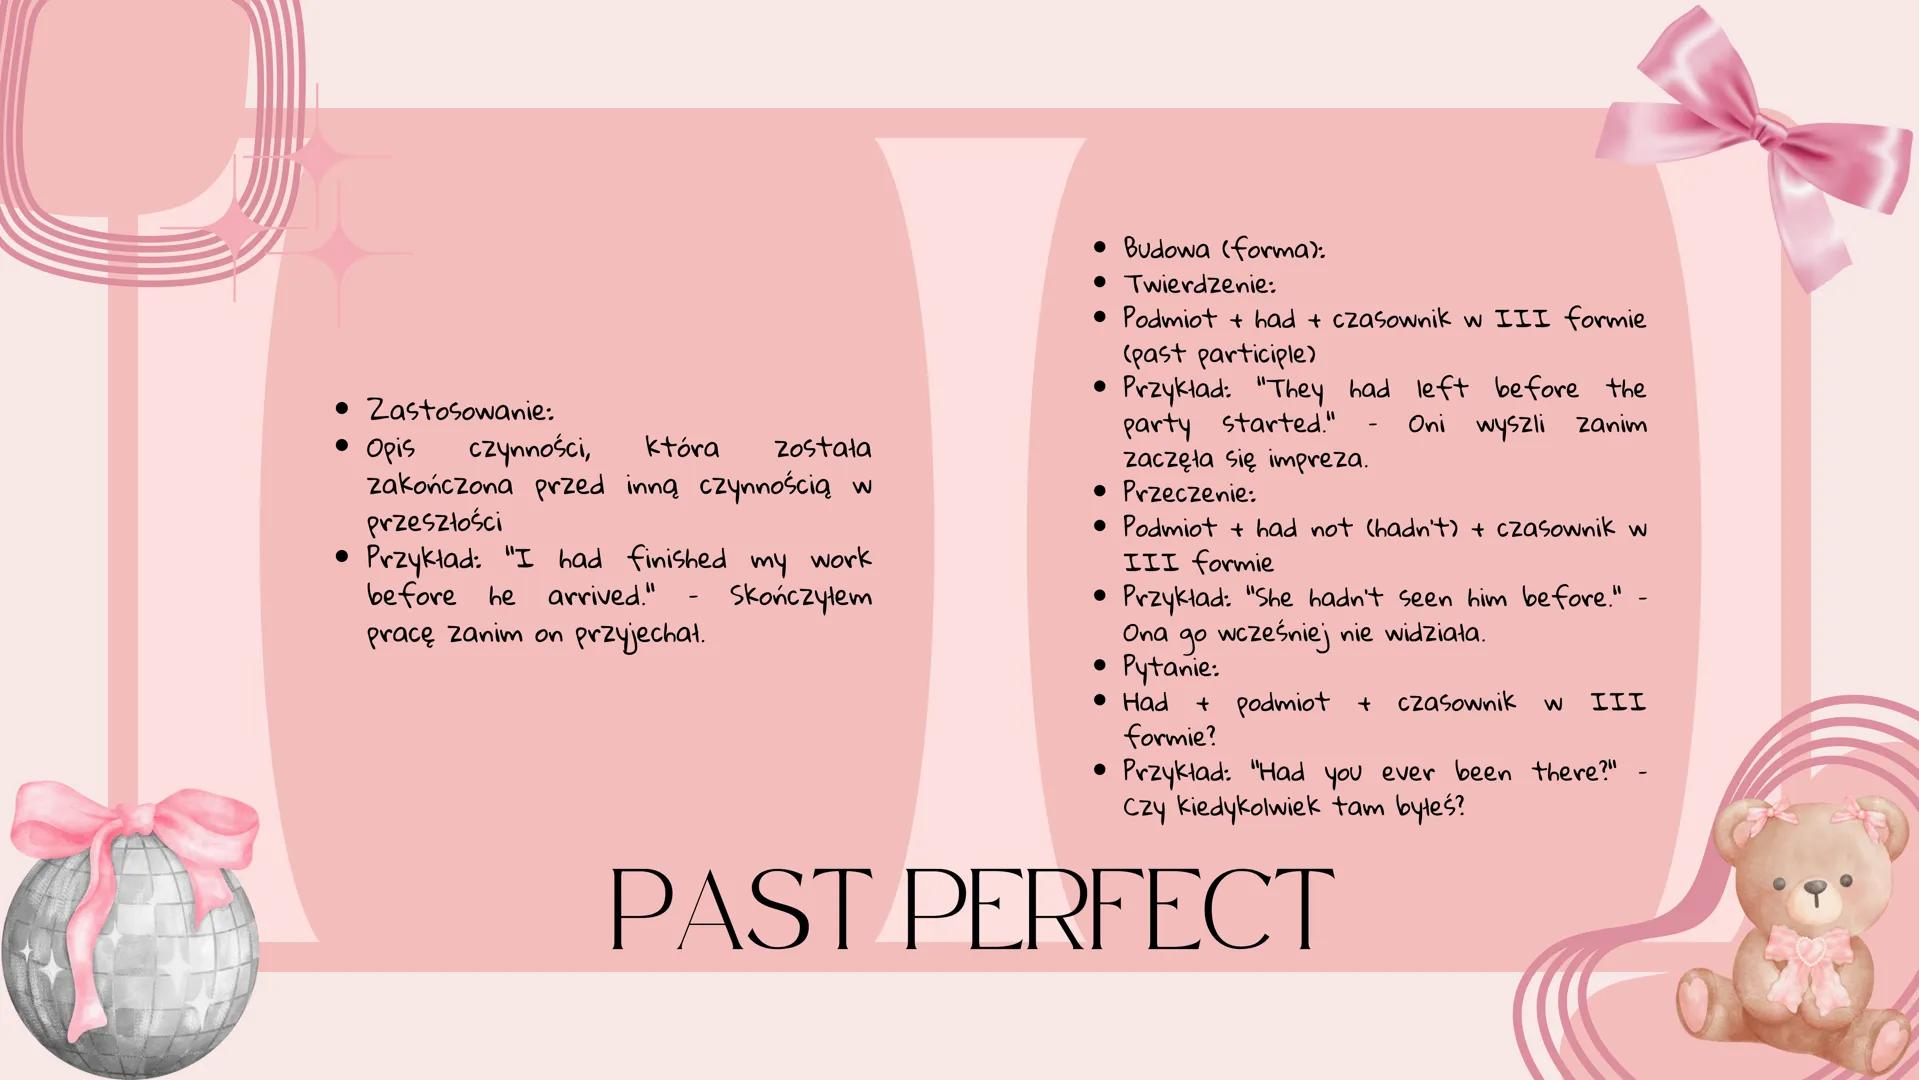 Zastosowanie:
Opis czynności, która została
zakończona przed inną czynnością w
przeszłości
Przykład: "I had finished my work
before he arrived." - Skończyłem
pracę zanim on przyjechał.
Budowa (forma):
Twierdzenie:
Podmiot + had + czasownik w III formie
(past participle)
Przykład: "They had left before the
party started." - Oni wyszli zanim
zaczęła się impreza.
Przeczenie:
Podmiot + had not (hadn't) + czasownik w
III formie
Przykład: "She hadn't seen him before." -
Ona go wcześniej nie widziała.
Pytanie:
Had + podmiot + czasownik w III
formie?
Przykład: "Had you ever been there?" -
Czy kiedykolwiek tam byłeś?
PAST PERFECT